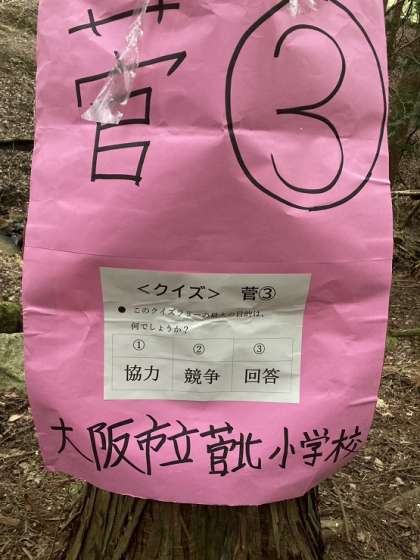 菅③
<クイズ> 菅③
● このクイズラリーの最大の目的は、
何でしょうか?
① ② ③
協力 競争 回答
大阪市立菅北小学校